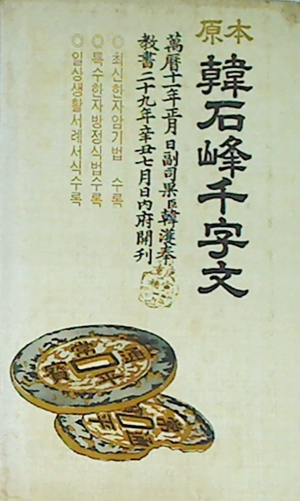 原本
韓石峰千字文
萬曆十一年正月 日副司果臣韓濩奉
教書二十九年辛丑七月 日內府開刊
◎최신한자암기법 수록
◎특수한자방정식법수록
◎일상생활서례서식수록
常平